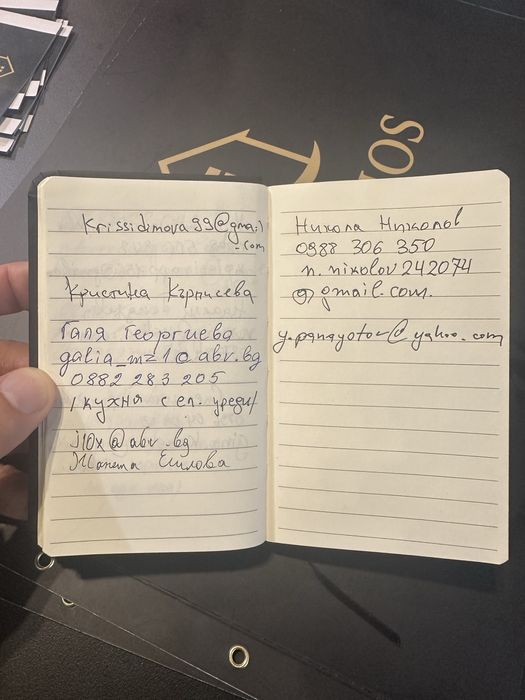 Krissidimova99@gmail
.com
Кристина Кърписева
Галя Георгиева
galia_mz1@abv.bg
0882 283 205
/ кухня с ел. уреди/
j10x@abv.bg
Жанета Ешлова
Никола Николов
0988 306 350
n.nikolov242074
@gmail.com.
y.panayotov@yahoo.com